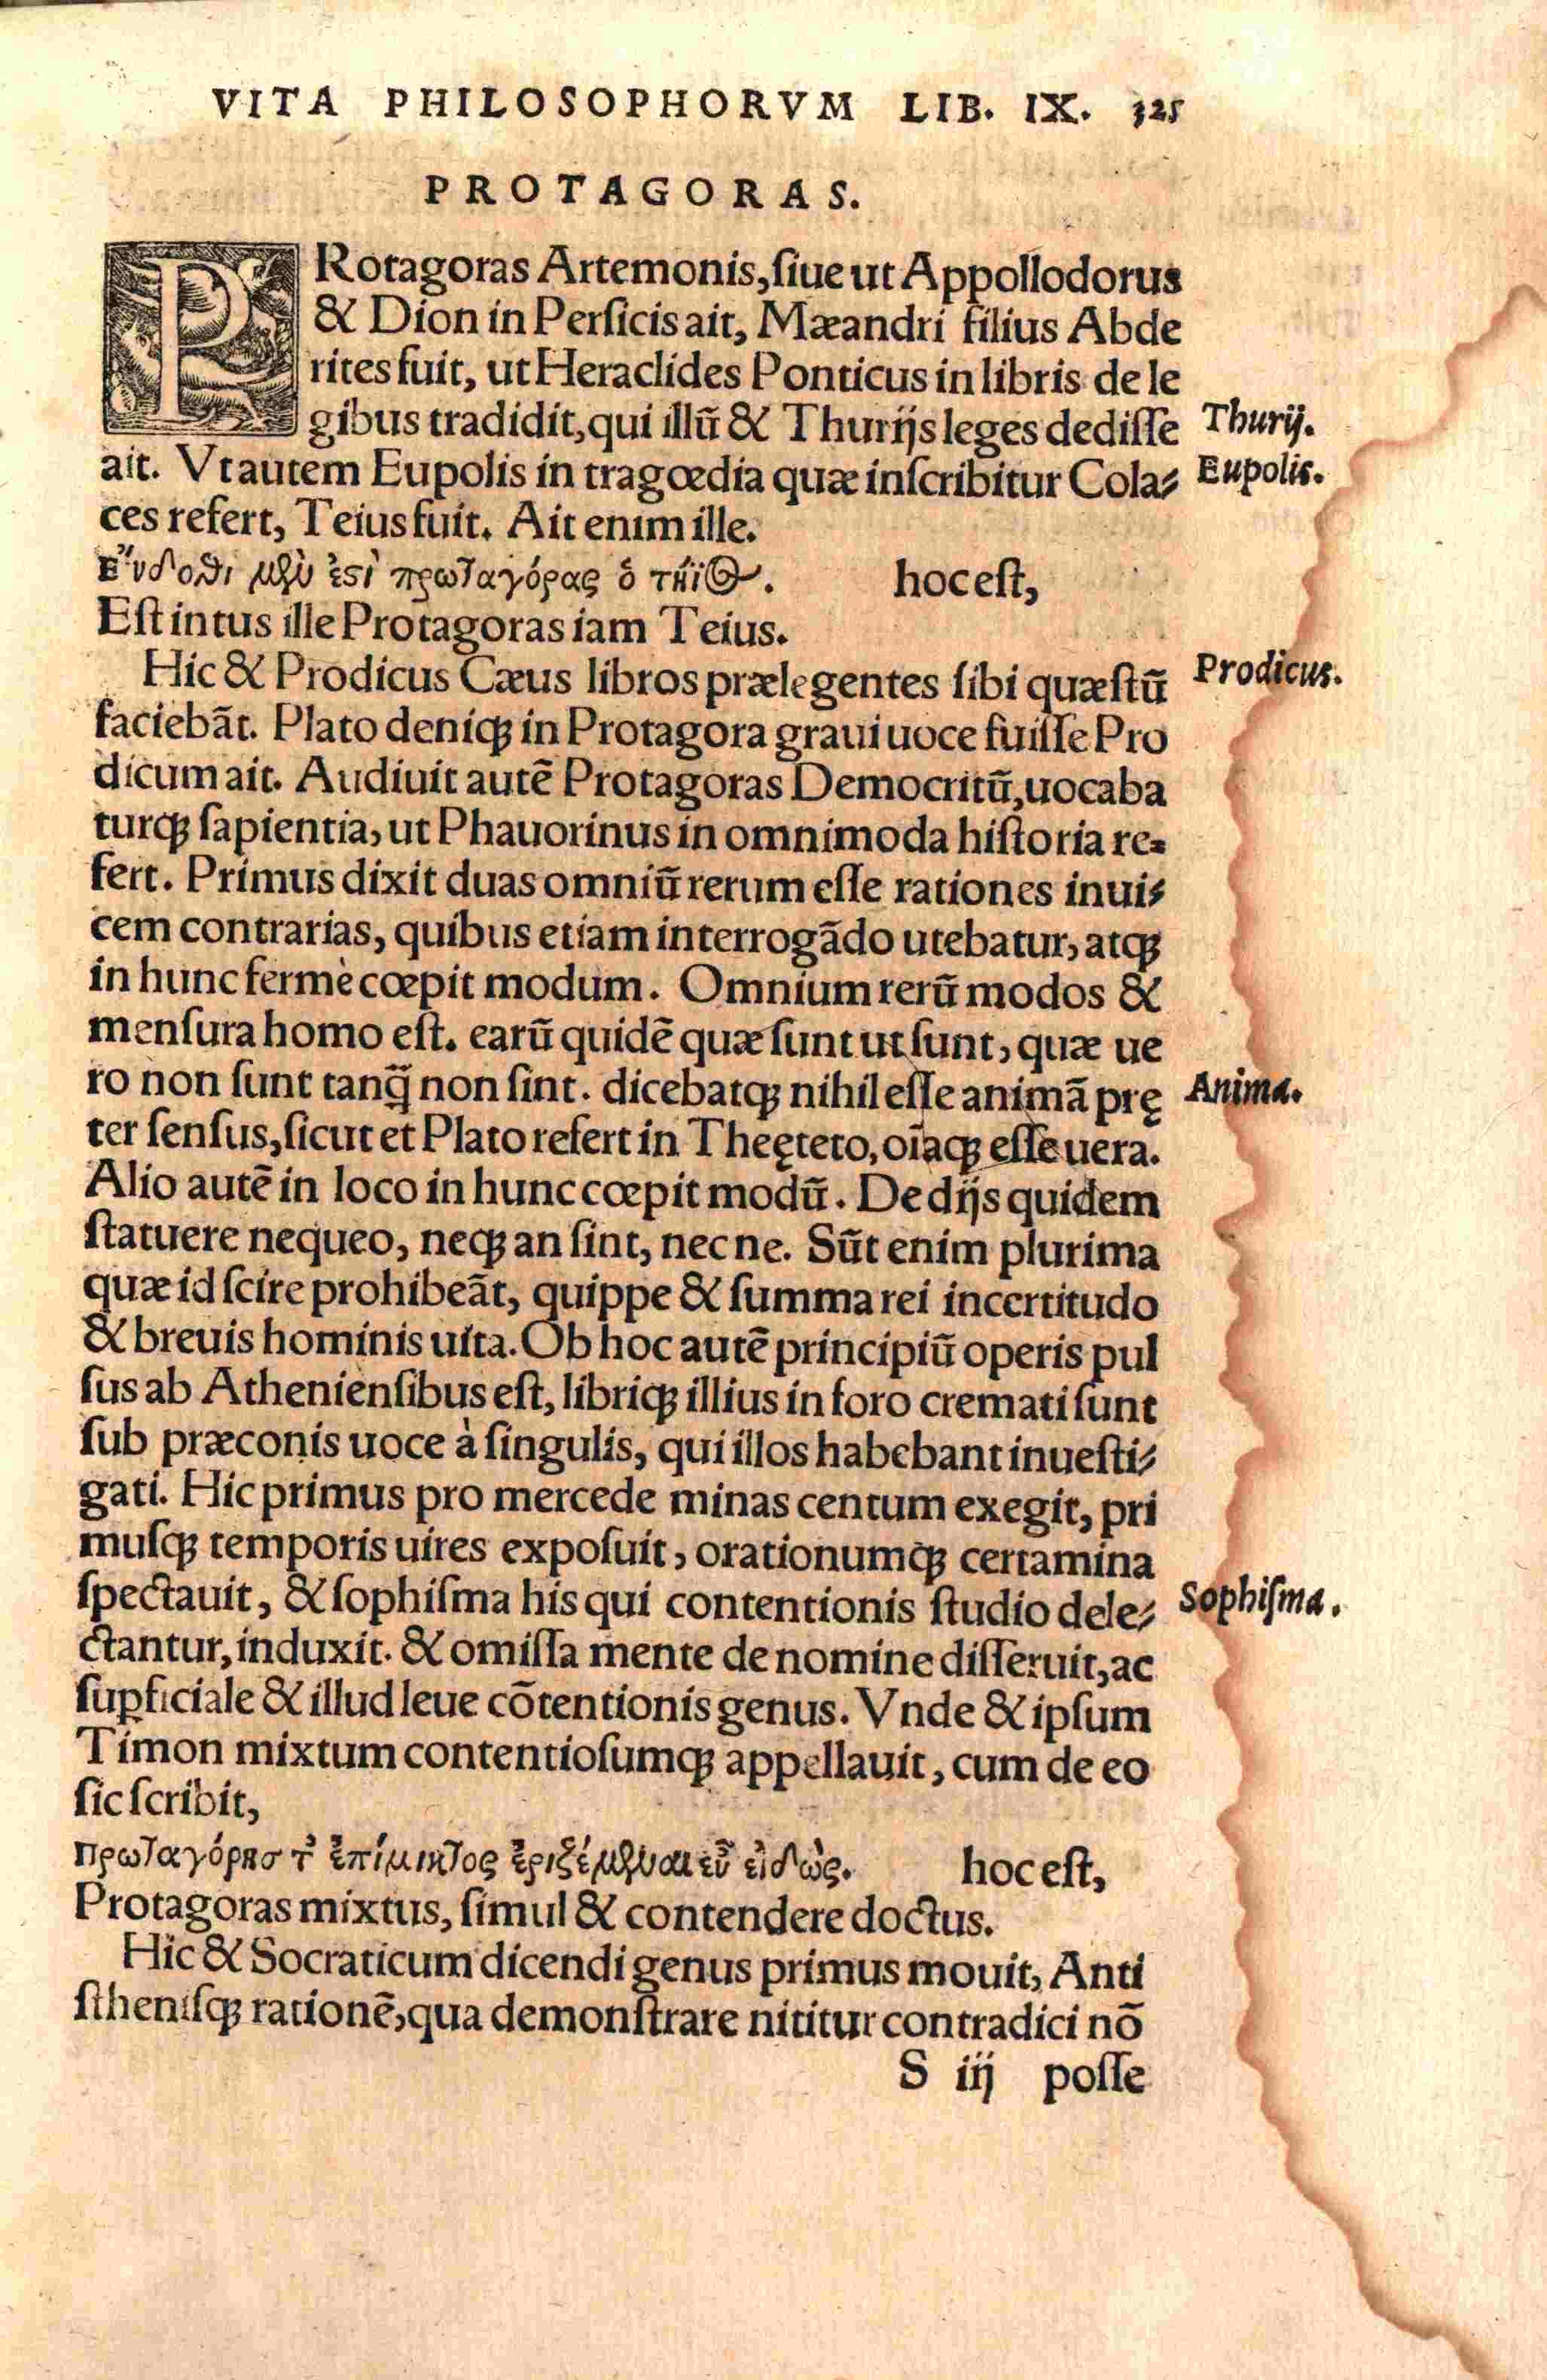 VITA PHILOSOPHORVM LIB. IX. 325
PROTAGORAS.
PRotagoras Artemonis, ſiue ut Appollodorus
& Dion in Perſicis ait, Mæandri filius Abde
rites fuit, ut Heraclides Ponticus in libris de le
gibus tradidit, qui illū & Thurijs leges dediſſe
Thurij.
ait. Vt autem Eupolis in tragœdia quæ inſcribitur Cola⸗
Eupolis.
ces refert, Teius fuit. Ait enim ille.
Ἔνδοθι μὲν ἐστὶ πρωταγόρας ὁ τήϊος. hoc est,
Eſt intus ille Protagoras iam Teius.
Hic & Prodicus Cæus libros prælegentes ſibi quæſtū
Prodicus.
faciebāt. Plato deniq; in Protagora graui uoce fuiſſe Pro
dicum ait. Audiuit autē Protagoras Democritū, uocaba
turq; ſapientia, ut Phauorinus in omnimoda hiſtoria re⸗
fert. Primus dixit duas omniū rerum eſſe rationes inui⸗
cem contrarias, quibus etiam interrogādo utebatur, atq;
in hunc fermè cœpit modum. Omnium rerū modos &
menſura homo eſt. earū quidē quæ ſunt ut ſunt, quæ ue
ro non ſunt tanq̄ non ſint. dicebatq; nihil eſſe animā prę
Anima.
ter ſenſus, ſicut et Plato refert in Theęteto, oīaq; eſſe uera.
Alio autē in loco in hunc cœpit modū. De dijs quidem
ſtatuere nequeo, neq; an ſint, nec ne. Sūt enim plurima
quæ id ſcire prohibeāt, quippe & ſumma rei incertitudo
& breuis hominis uita. Ob hoc autē principiū operis pul
ſus ab Athenienſibus eſt, libriq; illius in foro cremati ſunt
ſub præconis uoce à ſingulis, qui illos habebant inueſti⸗
gati. Hic primus pro mercede minas centum exegit, pri
muſq; temporis uires expoſuit, orationumq; certamina
ſpectauit, & ſophiſma his qui contentionis ſtudio dele⸗
Sophiſma.
ctantur, induxit. & omiſſa mente de nomine diſſeruit, ac
suꝑficiale & illud leue cōtentionis genus. Vnde & ipſum
Timon mixtum contentioſumq; appellauit, cum de eo
ſic ſcribit,
Πρωταγόρησ τ' ἐπίμικτος ἐριζέμεναι εὖ εἰδὼς. hoc eſt,
Protagoras mixtus, ſimul & contendere doctus.
Hic & Socraticum dicendi genus primus mouit, Anti
ſtheniſq; rationē, qua demonſtrare nititur contradici nō
S iij poſſe